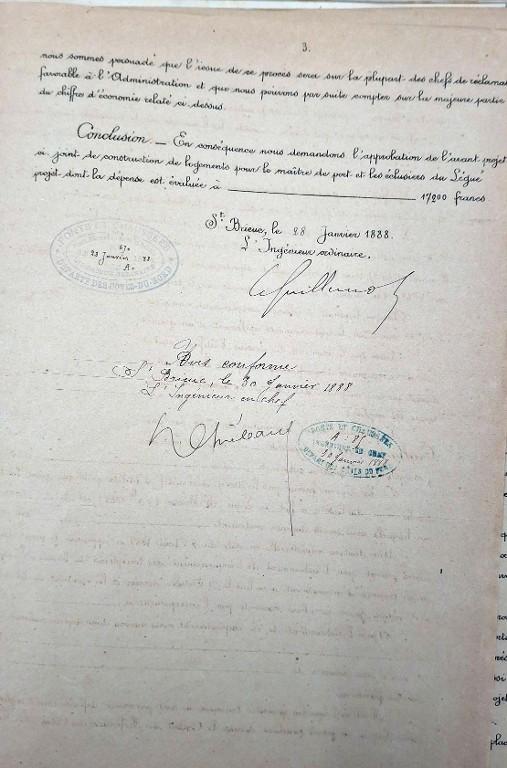 3.
nous sommes persuadé que l'issue de ce procès sera sur la plupart des chefs de réclamat
favorable à l'Administration et que nous pouvons par suite compter sur la majeure partie
du chiffre d'économie relaté ci dessus.
Conclusion. — En conséquence nous demandons l'approbation de l'avant projet
ci joint de construction de logements pour le maître de port et les éclusiers du Légué
projet dont la dépense est évaluée à 17200 francs
St Brieuc, le 28 Janvier 1888.
L'Ingénieur ordinaire,
Guillemot
28 Janvier 88
DÉPARTT DES CÔTES-DU-NORD
Avis conforme
St Brieuc, le 30 Janvier 1888
L'Ingénieur en chef
PONTS ET CHAUSSÉES
INGÉNIEUR EN CHEF
30 Janvier 1888
DÉPARTT DES CÔTES DU NORD